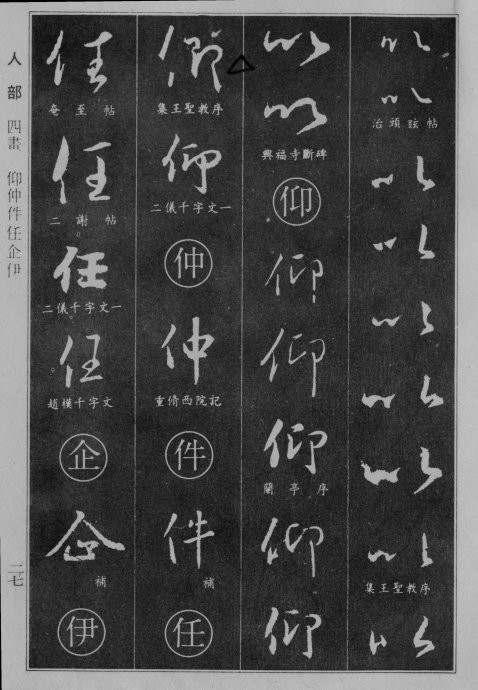 人部 四畫 仰仲件任企伊
二七
以
以
治頭眩帖
以
以
以
以
以
以
集王聖教序
以
以
以
興福寺斷碑
仰
仰
仰
仰
蘭亭序
仰
仰
仰
集王聖教序
仰
二儀千字文一
仲
仲
重脩西院記
件
件
補
任
任
奄至帖
任
二謝帖
任
二儀千字文一
任
趙模千字文
企
企
補
伊